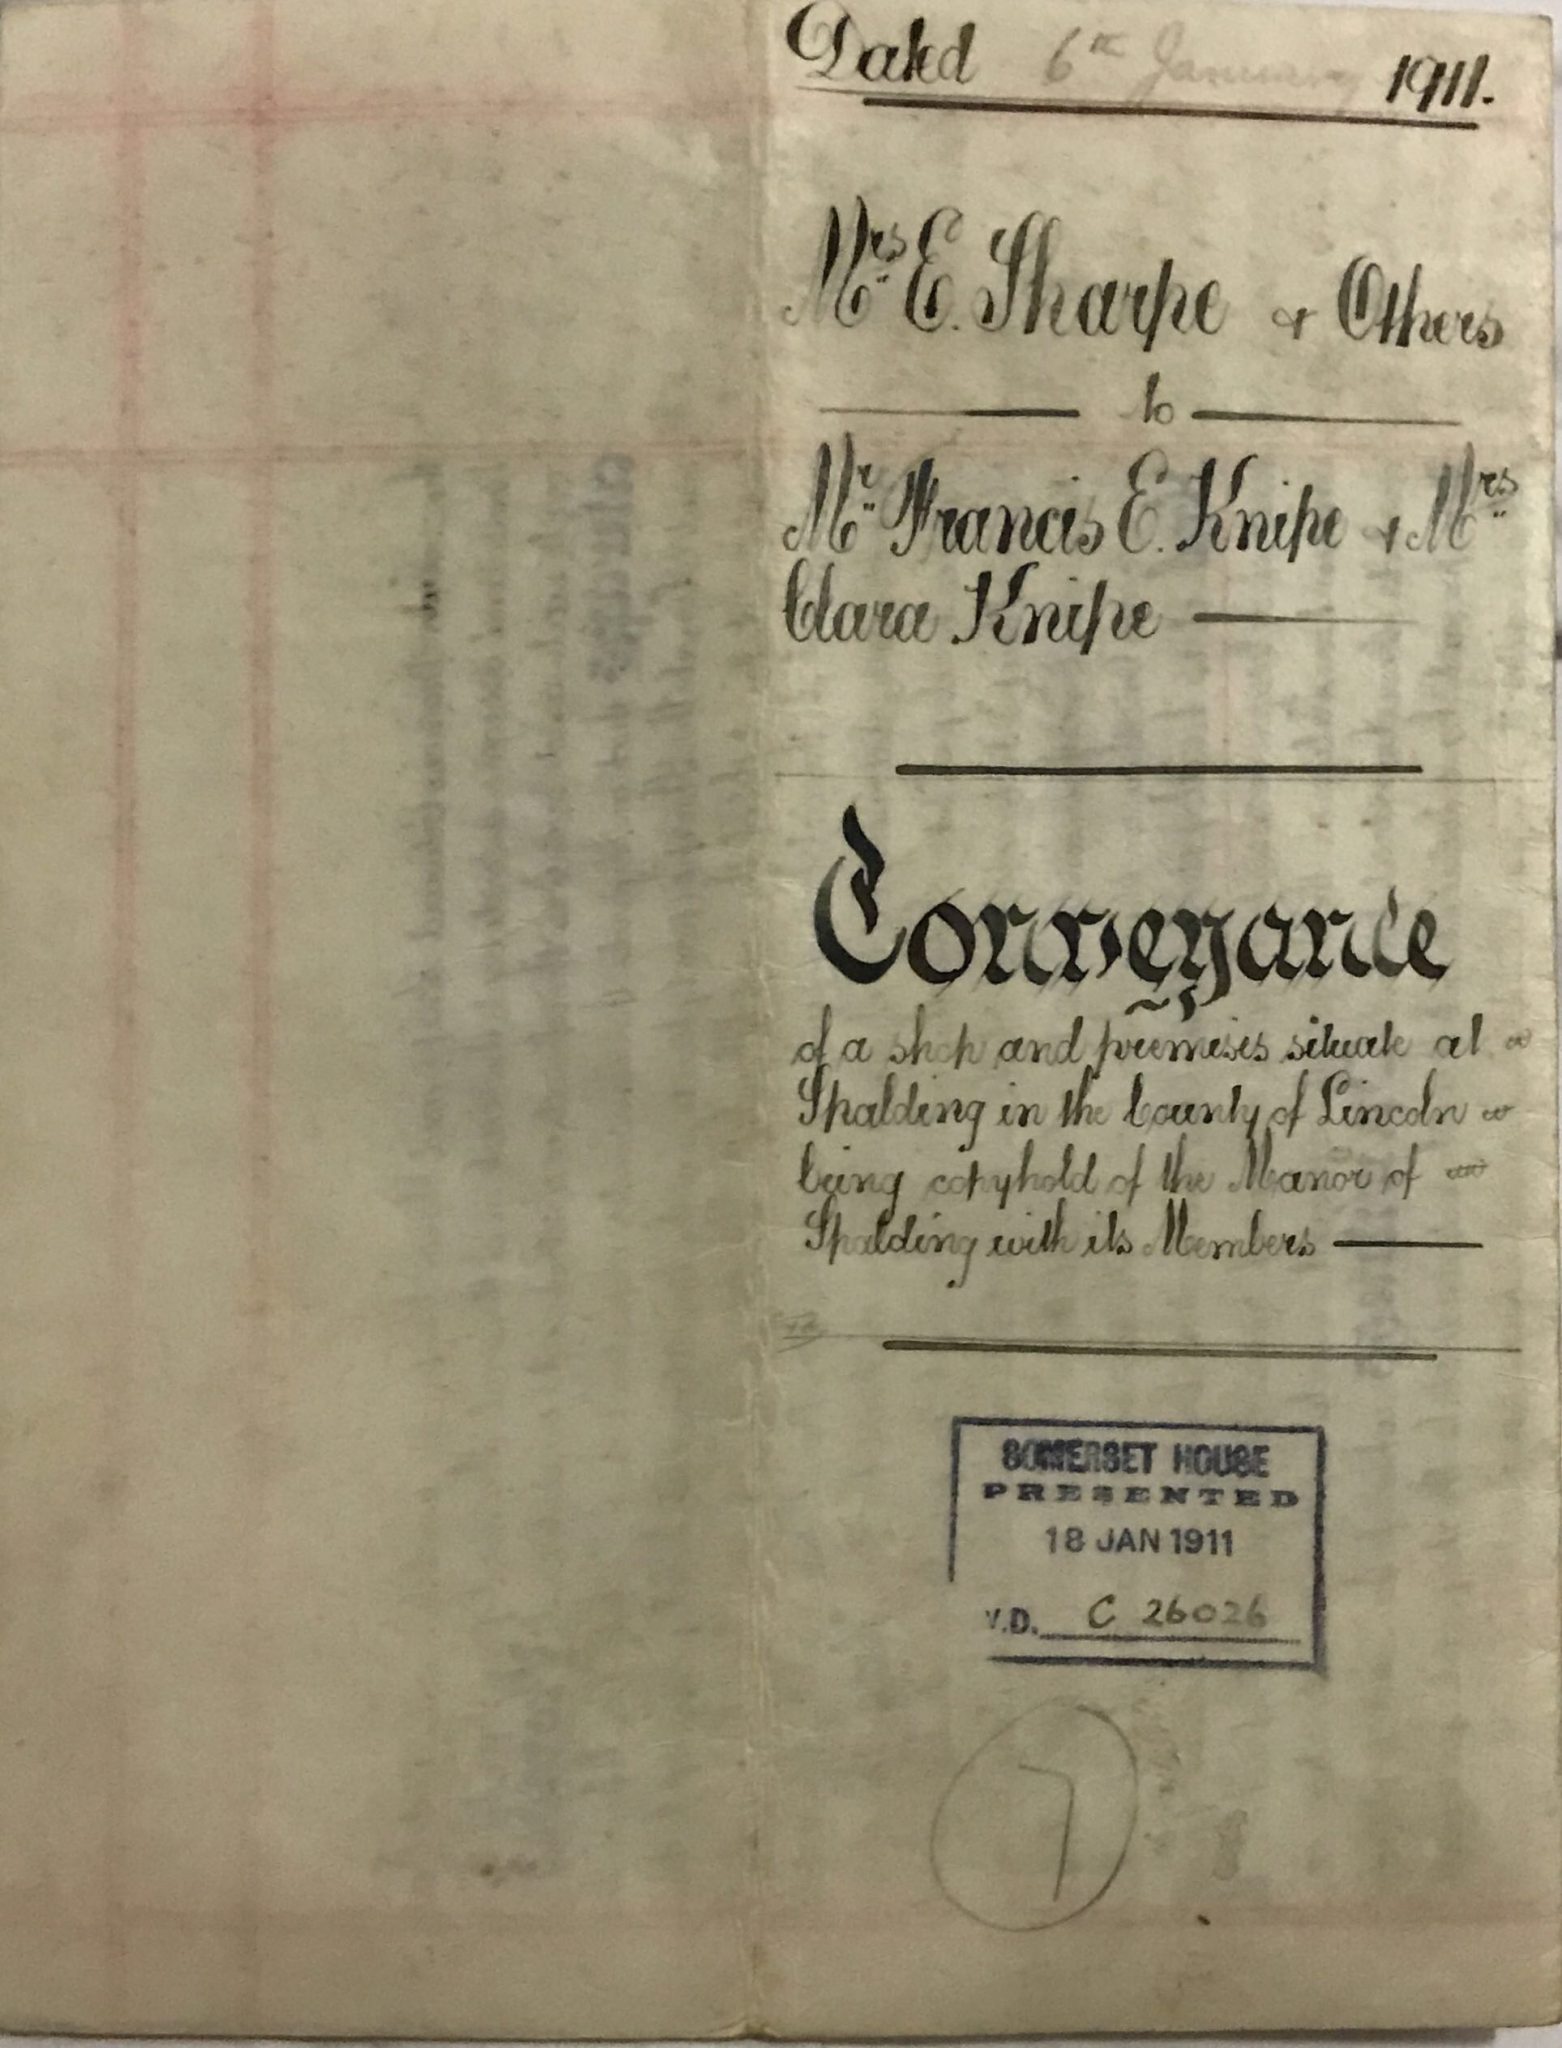 Dated 6th January 1911.
Mrs E. Sharpe & Others
to
Mr Francis E. Knipe & Mrs
Clara Knipe
Conveyance
of a shop and premises situate at
Spalding in the County of Lincoln
being copyhold of the Manor of
Spalding with its Members
SOMERSET HOUSE
PRESENTED
18 JAN 1911
V.D. C 26026
7